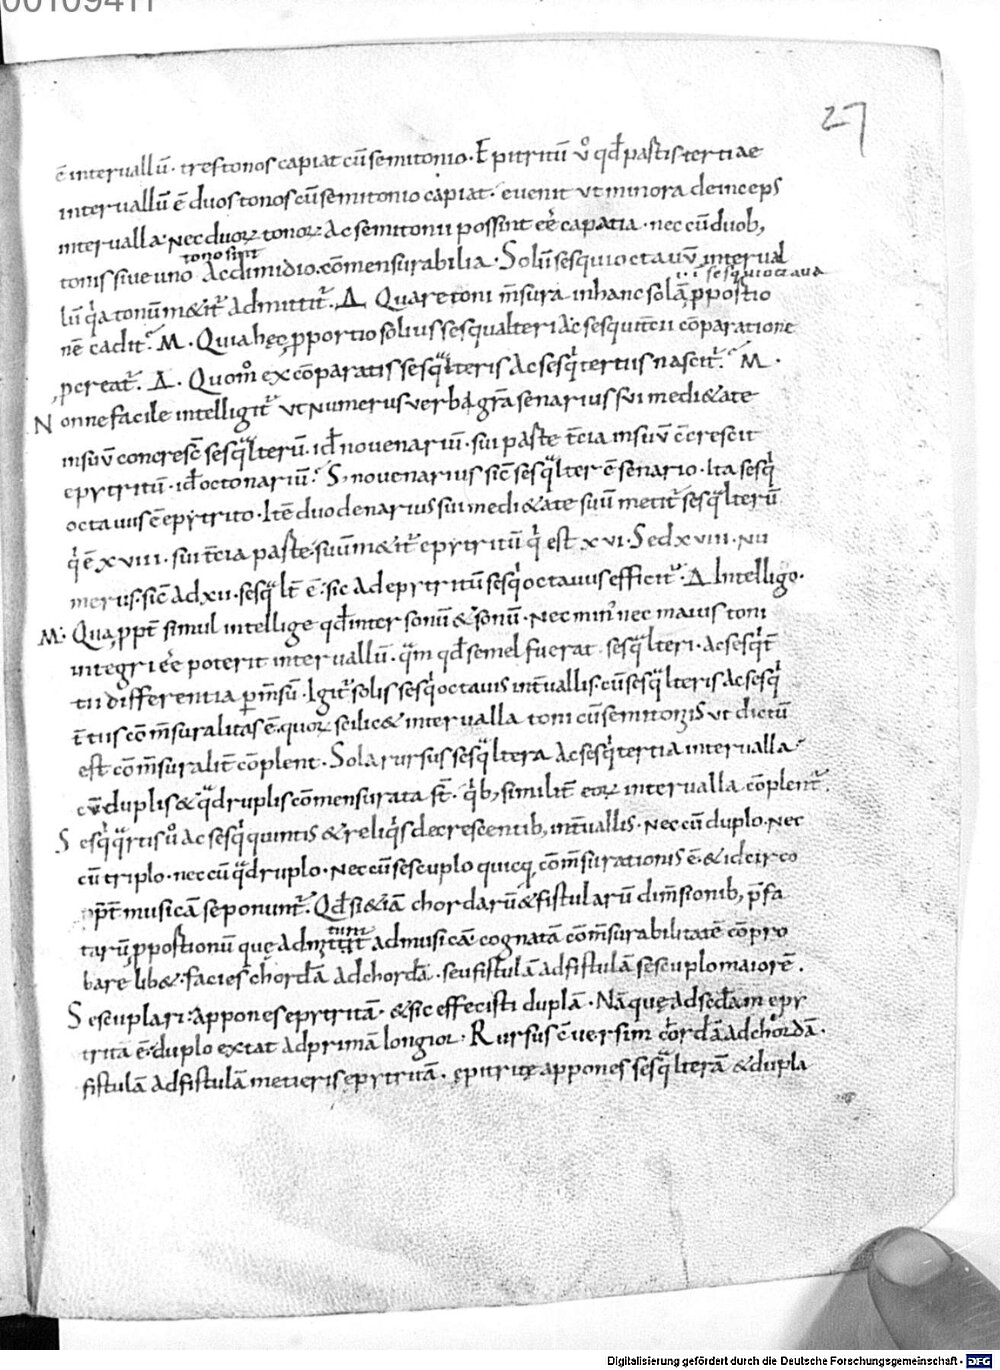 00109411
27
ē interuallū · tres tonos capiat cū semitonio · Epitritū ů qđ pastis tertiae
interuallū ē duos tonos cū semitonio capiat · euenit ut minora deinceps
interualla · nec duoꝝ tonoꝝ ac semitonii possint eē capatia · nec cū duob,
tono siue
tonis siue uno ac dimidio cōmensurabilia · Solū sesquioctauū interual
i · sesquioctaua
lū q̇a tonū m&it᷑ admittit᷑ · Δ Quare toni m̄sura in hanc solā ꝓpostio
nē cadit · M · Quia hęc ꝓportio solius sesqualteri ac sesquit̄cii cōparatione
ꝓcreat᷑ · Δ · Quom̊ ex cōparatis sesq̈lteris ac sesq̇tertiis nascit᷑ · M ·
Nonne facile intelligit᷑ ut numerus uerbi gr̄a senarius sui medi&ate
in suū concresc̄ sesq̈lterū · id novenariū · sui paste t̄cia in suū c̄crescit
epytritū · id octonariū · S, nouenarius sic̄ sesq̈lter ē senario · Ita sesq̇
octauus ē epytrito · Itē duodenarius sui medi&ate suū metit᷑ sesq̈lterū
q̇ ē xviii · sui t̄cia paste suū m&it᷑ epytritū q̇ est xvi · Sed xviii · nu
merus · sic̄ ad xii · sesq̈lt̄ ē · sic ad epytritū sesq̇octauus efficit᷑ · Δ Intelligo ·
M · Quaꝓpt̄ simul intellige qđ inter sonū & sonū · nec min᷒ nec maius toni
integri eē poterit interuallū · q̈m qđ semel fuerat sesq̈lteri · ac sesq̇t̄
tii differentia ꝑm̄sū · Igit᷑ solis sesq̇octauis int̄uallis · cū sesq̈lteris ac sesq̇
t̄tiis cōm̄suralitas ē · quoꝝ scilic& interualla toni cū semitoniis ut dictū
est cōm̄suralit̄ cōplent · Sola rursus sesq̈ltera ac sesq̇tertia interualla
cū duplis & q̈druplis cōmensurata st̄ · q̇b, similit̄ eoꝝ interualla cōplent᷑ ·
Sesq̇q̈rtis ů ac sesq̇quintis & reliq̇s decrescentib, int̄uallis · nec cū duplo · nec
cū triplo · nec cū q̈druplo · nec cū sescuplo quicq̨ cōm̄surationis ē · & idcirco
ꝓpt̄ musicā seponunt᷑ · Qđ si &iā chordarū & fistularū dim̄sionib, p̄fa
tarū ꝓpostionū quę admittunt᷑ ad musicā cognatā cōm̄surabilitatē cōpro
bare lib& · facies chordā ad chordā · seu fistulā ad fistulā sescuplo maiorē ·
Sescuplari · appones epytritā · & sic effecisti duplā · Nā quę ad sedam epy
trita ē · duplo extat ad primā longior · Rursus c̄uersim chordā ad chordā ·
fistulā ad fistulā metieris epytritā · ępitritę appones sesq̈lterā & dupla
Digitalisierung gefördert durch die Deutsche Forschungsgemeinschaft - DFG